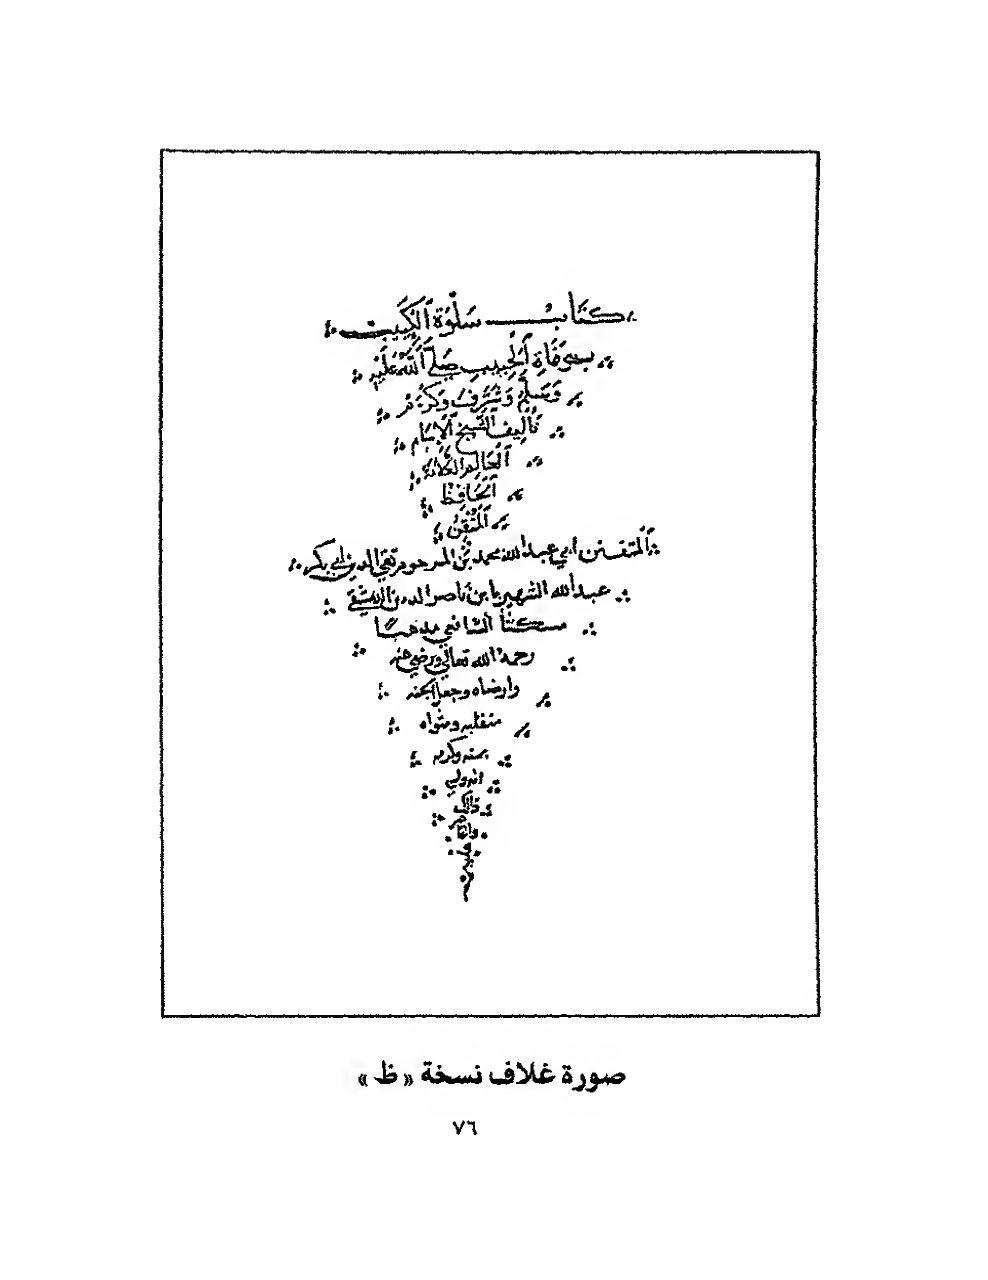 كتاب سلوة الكئيب
بوفاة الحبيب صلى الله عليه
وسلم وشرف وكرم
تأليف الشيخ الإمام
العالم العلامة
الحافظ
المتقن
المتفنن أبي عبد الله محمد بن المرحوم تقي الدين أبي بكر
عبد الله الشهير بابن ناصر الدين الدمشقي
مسكنًا الشافعي مذهبًا
رحمه الله تعالى ورضي عنه
وارضاه وجعل الجنة
متقلبه ومثواه
بمنه وكرمه
انه ولي
ذلك
والقادر
عليه
صورة غلاف نسخة « ظ »
٧٦